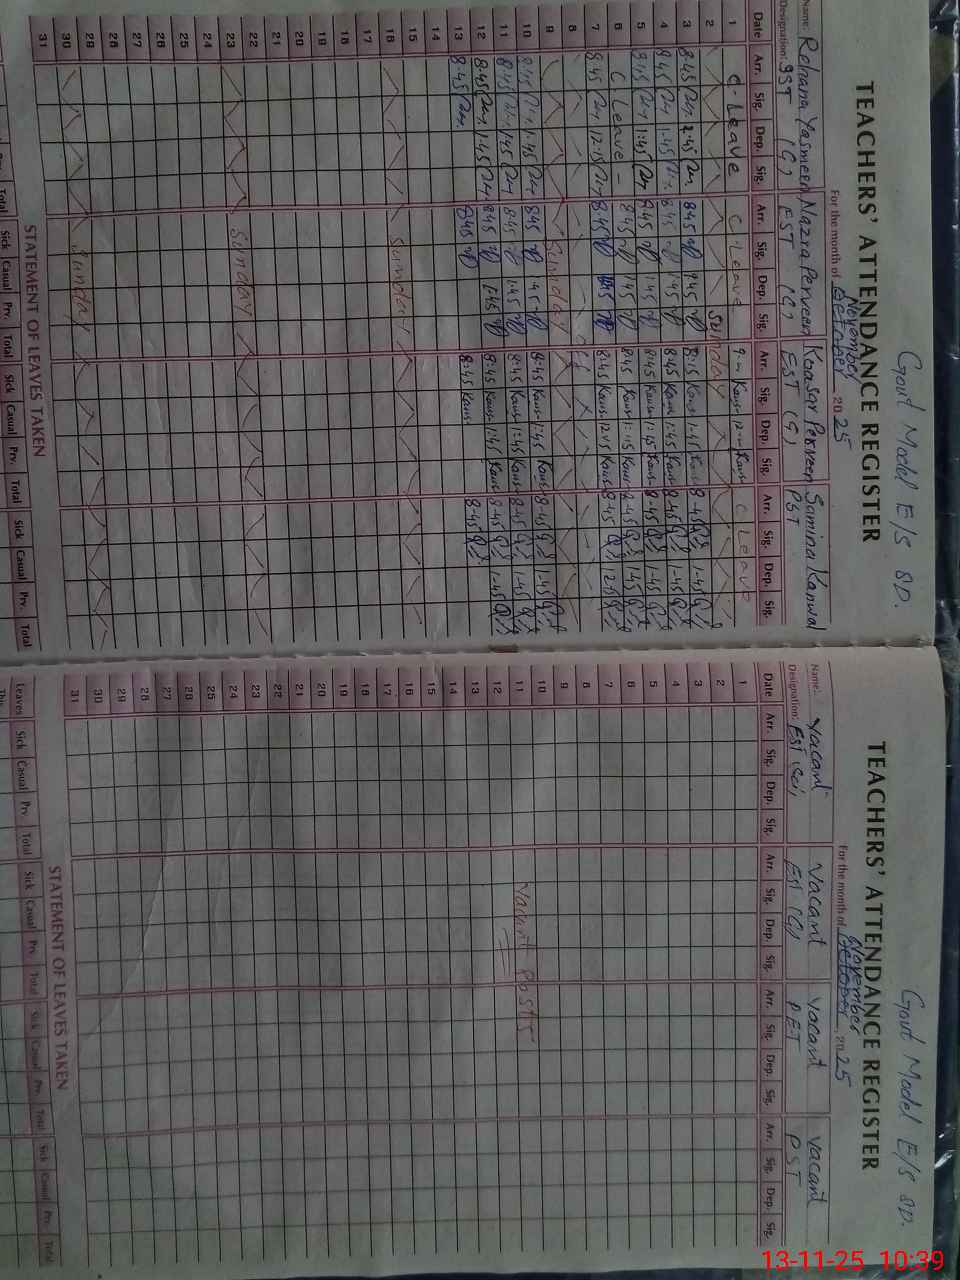 Govt Model E/S SD.
TEACHERS' ATTENDANCE REGISTER
For the month of October November 2025
Name: Rehana Yasmeen Nazra Perveen Kousar Perveen Samina Kanwal
Designation: SST (G) EST (G) EST (G) PST
Date Arr. Sig. Dep. Sig. Arr. Sig. Dep. Sig. Arr. Sig. Dep. Sig. Arr. Sig. Dep. Sig.
1 C. Leave C Leave 9- Kaus 12- Kaus C Leave
2 Sunday
3 8:45 2:45 8:45 1:45 8:15 Kaus 1-45 Kaus 8-45 1-45
4 8:45 1:45 8:45 1:45 8:45 Kaus 1:45 Kaus 8-45 1-45
5 8:45 1:45 8:45 1:45 8:45 Kaus 1:15 Kaus 8-45 1-45
6 C Leave - 8:45 1:45 8:45 Kaus 1:15 Kaus 8-45 1-45
7 8:45 12:15 8:45 8:45 Kaus 12:15 Kaus 8-45 12:15
8 off
9 Sunday
10 8:45 1:45 8:45 1:45 8:45 Kaus 1:45 Kaus 8-45 1-45
11 8:45 1:45 8:45 1:45 8:45 Kaus 1:45 Kaus 8-45 1-45
12 8:45 1:45 8:45 1:45 8:45 Kaus 1:45 Kaus 8-45 1-45
13 8:45 8:45 8:45 Kaus 8-45
14
15
16 Sunday
17
18
19
20
21
22
23 Sunday
24
25
26
27
28
29
30 Sunday
31
STATEMENT OF LEAVES TAKEN
Sick Casual Prv. Total Sick Casual Prv. Total Sick Casual Prv. Total
Govt Model E/S SD.
TEACHERS' ATTENDANCE REGISTER
For the month of October November, 2025
Name: Vacant Vacant Vacant Vacant
Designation: EST (Sci) EST (G) PET PST
Date Arr. Sig. Dep. Sig. Arr. Sig. Dep. Sig. Arr. Sig. Dep. Sig. Arr. Sig. Dep. Sig.
1
2
3
4
5
6
7
8
9
10
11 Vacant Posts
12
13
14
15
16
17
18
19
20
21
22
23
24
25
26
27
28
29
30
31
STATEMENT OF LEAVES TAKEN
Leaves Sick Casual Prv. Total Sick Casual Prv. Total Sick Casual Prv. Total Sick Casual Prv. Total
13-11-25 10:39